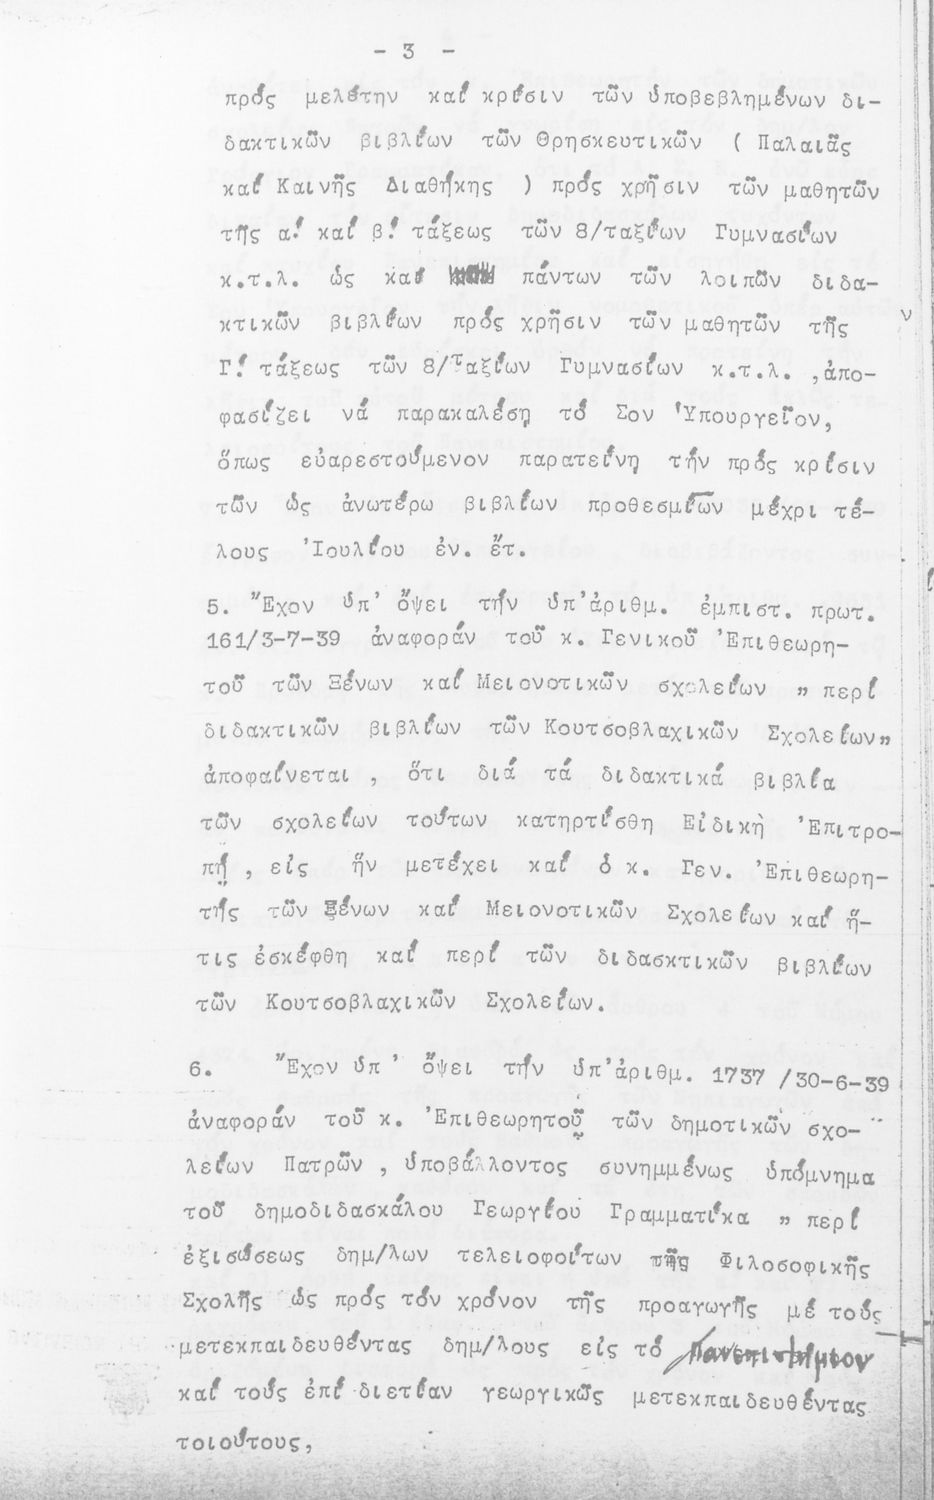 - 3 -
πρός μελέτην καί κρίσιν τῶν ὑποβεβλημένων δι-
δακτικῶν βιβλίων τῶν Θρησκευτικῶν ( Παλαιᾶς
καί Καινῆς Διαθήκης ) πρός χρῆσιν τῶν μαθητῶν
τῆς α! καί β! τάξεως τῶν 8/ταξίων Γυμνασίων
κ.τ.λ. ὡς καί πάντων τῶν λοιπῶν διδα-
κτικῶν βιβλίων πρός χρῆσιν τῶν μαθητῶν τῆς
Γ! τάξεως τῶν 8/Ταξίων Γυμνασίων κ.τ.λ. ,ἀπο-
φασίζει νά παρακαλέσῃ τό Σον Ὑπουργεῖον,
ὅπως εὐαρεστούμενον παρατείνῃ τήν πρός κρίσιν
τῶν ὡς ἀνωτέρω βιβλίων προθεσμίαν μέχρι τέ-
λους Ἰουλίου ἐν. ἔτ.
5. Ἔχον ὑπ' ὄψει τήν ὑπ'ἀριθμ. ἐμπιστ. πρωτ.
161/3-7-39 ἀναφοράν τοῦ κ. Γενικοῦ Ἐπιθεωρη-
τοῦ τῶν Ξένων καί Μειονοτικῶν σχολείων „ περί
διδακτικῶν βιβλίων τῶν Κουτσοβλαχικῶν Σχολείων„
ἀποφαίνεται , ὅτι διά τά διδακτικά βιβλία
τῶν σχολείων τούτων κατηρτίσθη Εἰδικὴ Ἐπιτρο-
πή , εἰς ἥν μετέχει καί ὁ κ. Γεν. Ἐπιθεωρη-
τής τῶν Ξένων καί Μειονοτικῶν Σχολείων καί ἥ-
τις ἐσκέφθη καί περί τῶν διδασκτικῶν βιβλίων
τῶν Κουτσοβλαχικῶν Σχολείων.
6. Ἔχον ὑπ ' ὄψει τήν ὑπ'ἀριθμ. 1737 /30-6-39
ἀναφοράν τοῦ κ. Ἐπιθεωρητοῦ τῶν δημοτικῶν σχο-
λείων Πατρῶν , ὑποβάλλοντος συνημμένως ὑπόμνημα
τοῦ δημοδιδασκάλου Γεωργίου Γραμματίκα „ περί
ἐξισώσεως δημ/λων τελειοφοίτων τῆς Φιλοσοφικῆς
Σχολῆς ὡς πρός τόν χρόνον τῆς προαγωγῆς μέ τούς
μετεκπαιδευθέντας δημ/λους εἰς τό Πανεπιστήμιον
καί τούς ἐπί διετίαν γεωργικῶς μετεκπαιδευθέντας
τοιούτους,